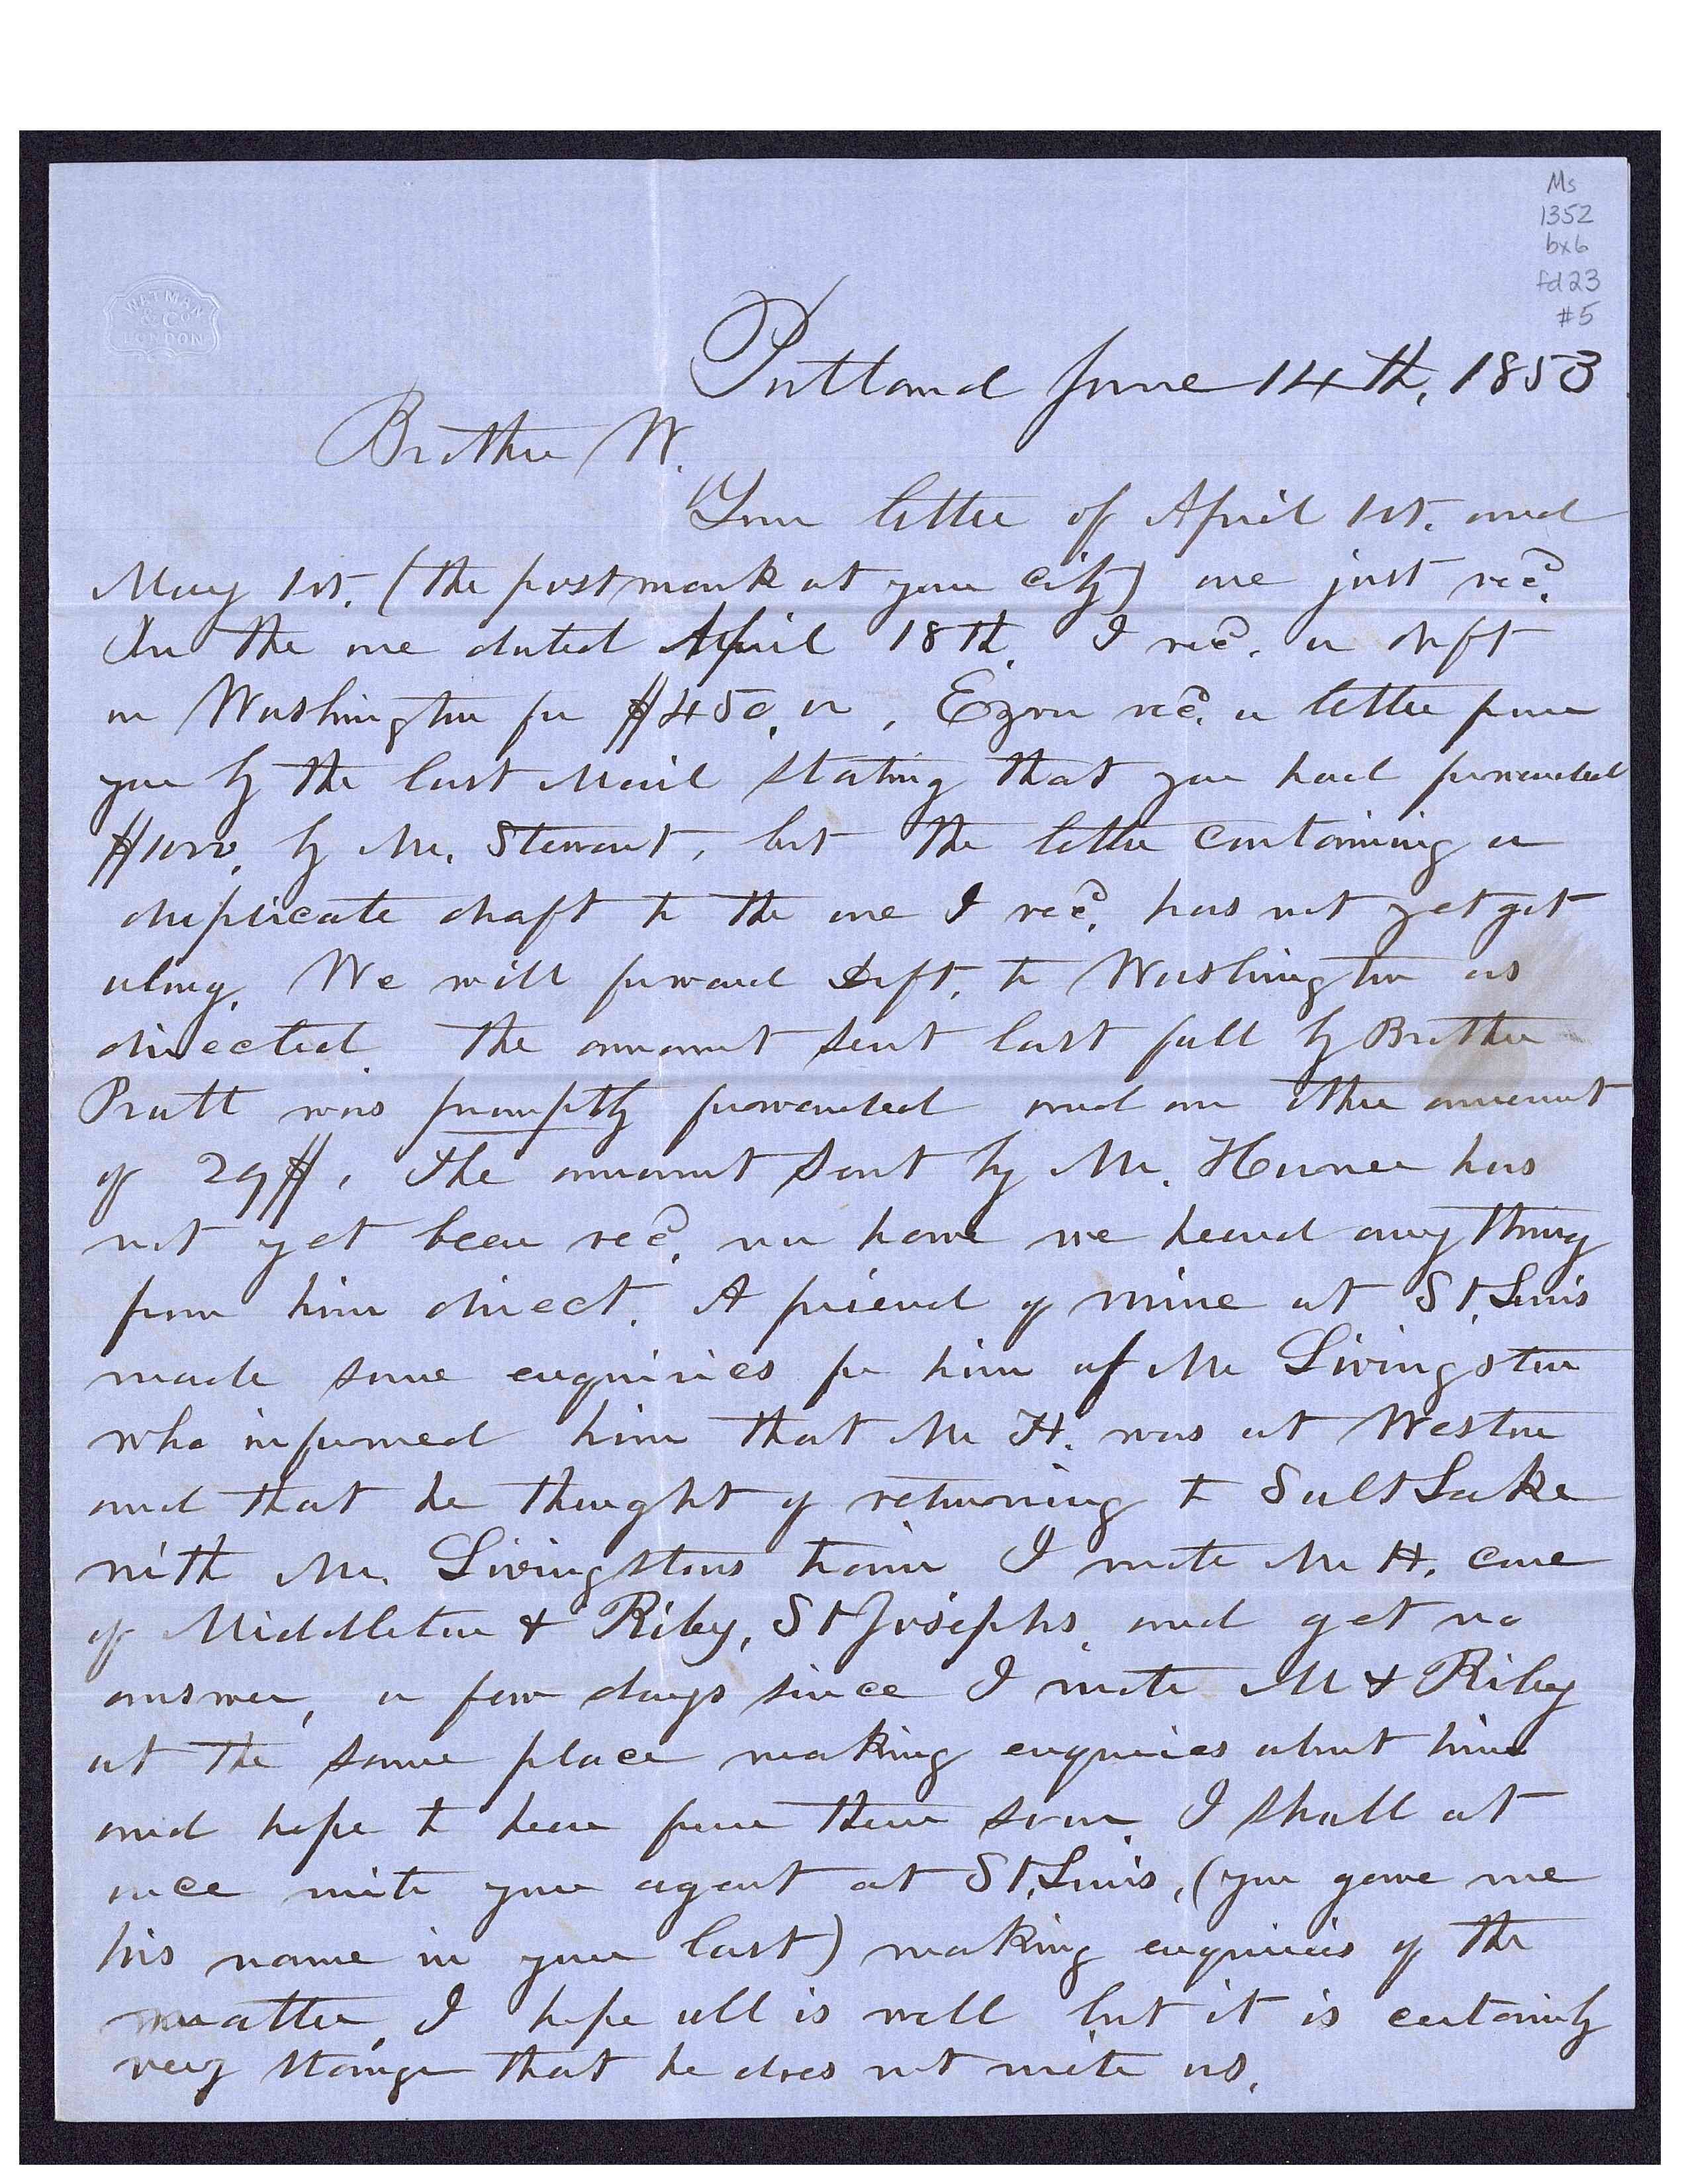 Ms
1352
bx6
fd23
#5
WATMAN
& Co
LONDON
Portland June 14th, 1853
Brother W.
Your letter of April 1st. and
May 1st. (the postmark at your city) are just recd.
In the one dated April 18th. I recd. a drft
on Washington for $450. , Ezra recd. a letter from
you by the last Mail stating that you had forwarded
$1000, by Mr. Stewart, but the letter containing a
duplicate draft to the one I recd. has not yet got
along. We will forward Drft. to Washington as
directed. The amount sent last fall by Brother
Pratt was promptly forwarded and an other amount
of 29$. The amount sent by Mr. Horner has
not yet been recd. nor have we heard any thing
from him direct. A friend of mine at St. Louis
made some enquiries for him of Mr Livingston
who informed him that Mr H. was at Weston
and that he thought of returning to Salt Lake
with Mr. Livingstons train I wrote Mr H. care
of Middleton & Riley, St Josephs, and get no
answer, a few days since I wrote M & Riley
at the same place making enquiries about him
and hope to hear from them soon. I shall at
once write your agent at St. Louis, (you gave me
his name in your last) making enquiries of the
matter, I hope all is well but it is certainly
very strange that he does not write us.